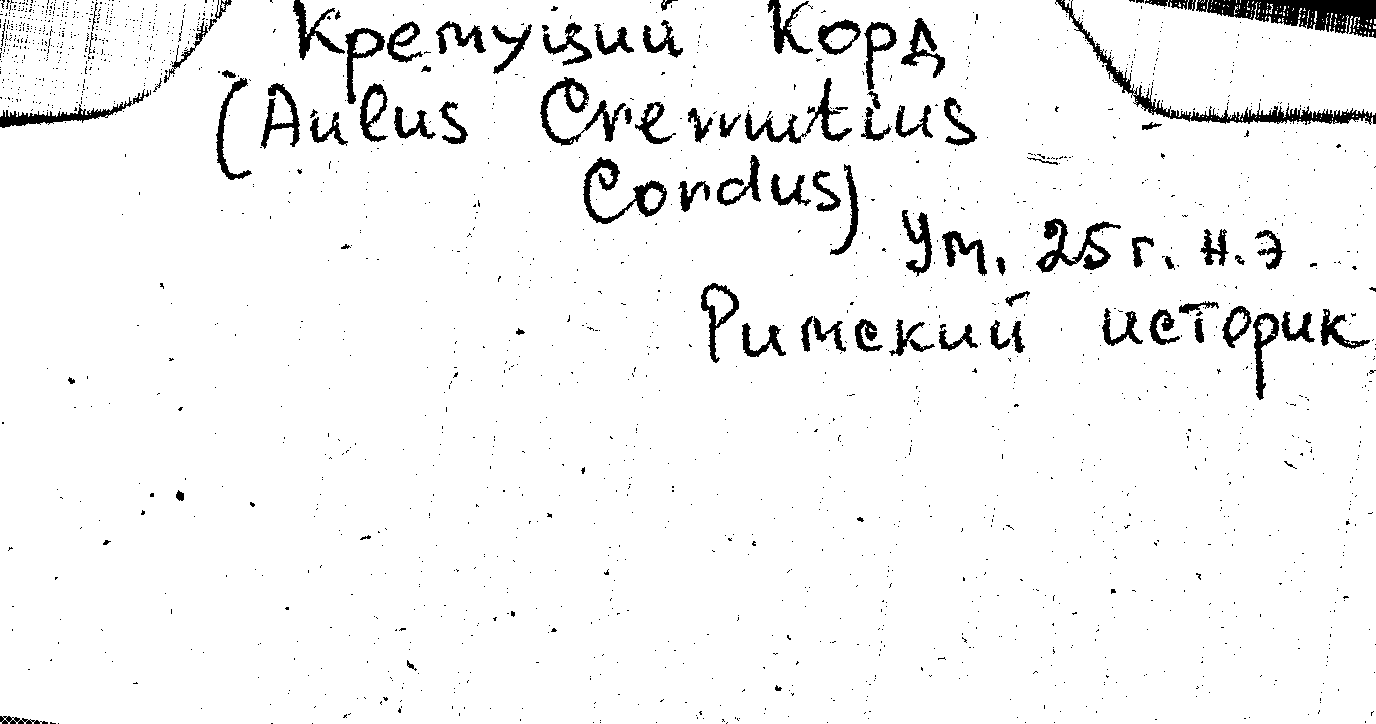 Кремуций Корд
(Aulus Cremutius
Cordus)
Ум. 25 г. н.э
Римский историк